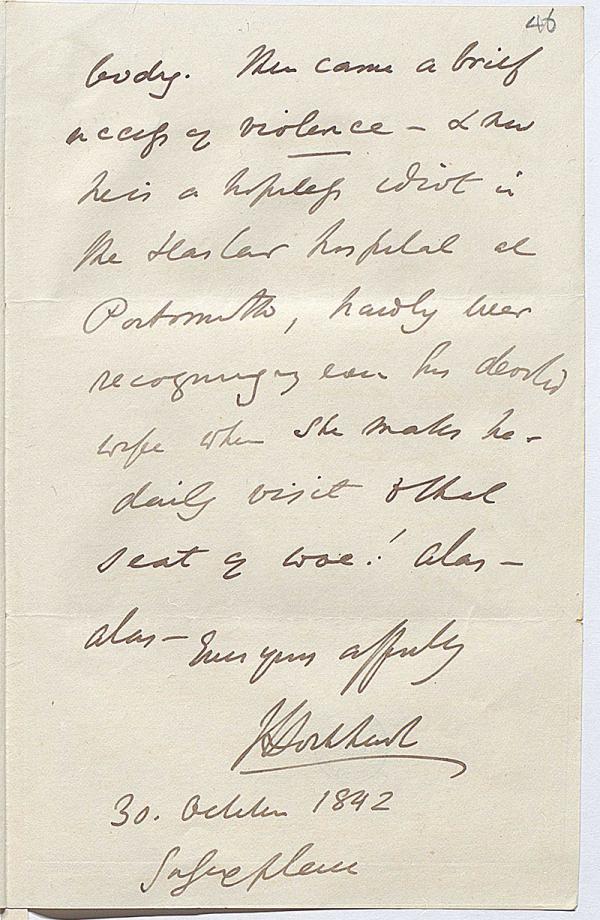 46
body. Then came a brief
access of violence – & now
he is a hopeless idiot in
the Haslar hospital at
Portsmouth, hardly ever
recognizing even his devoted
wife when she makes her
daily visit to that
seat of woe! Alas –
alas – Ever yrs affectly
JGLockhart
30. October 1842
Sussex place